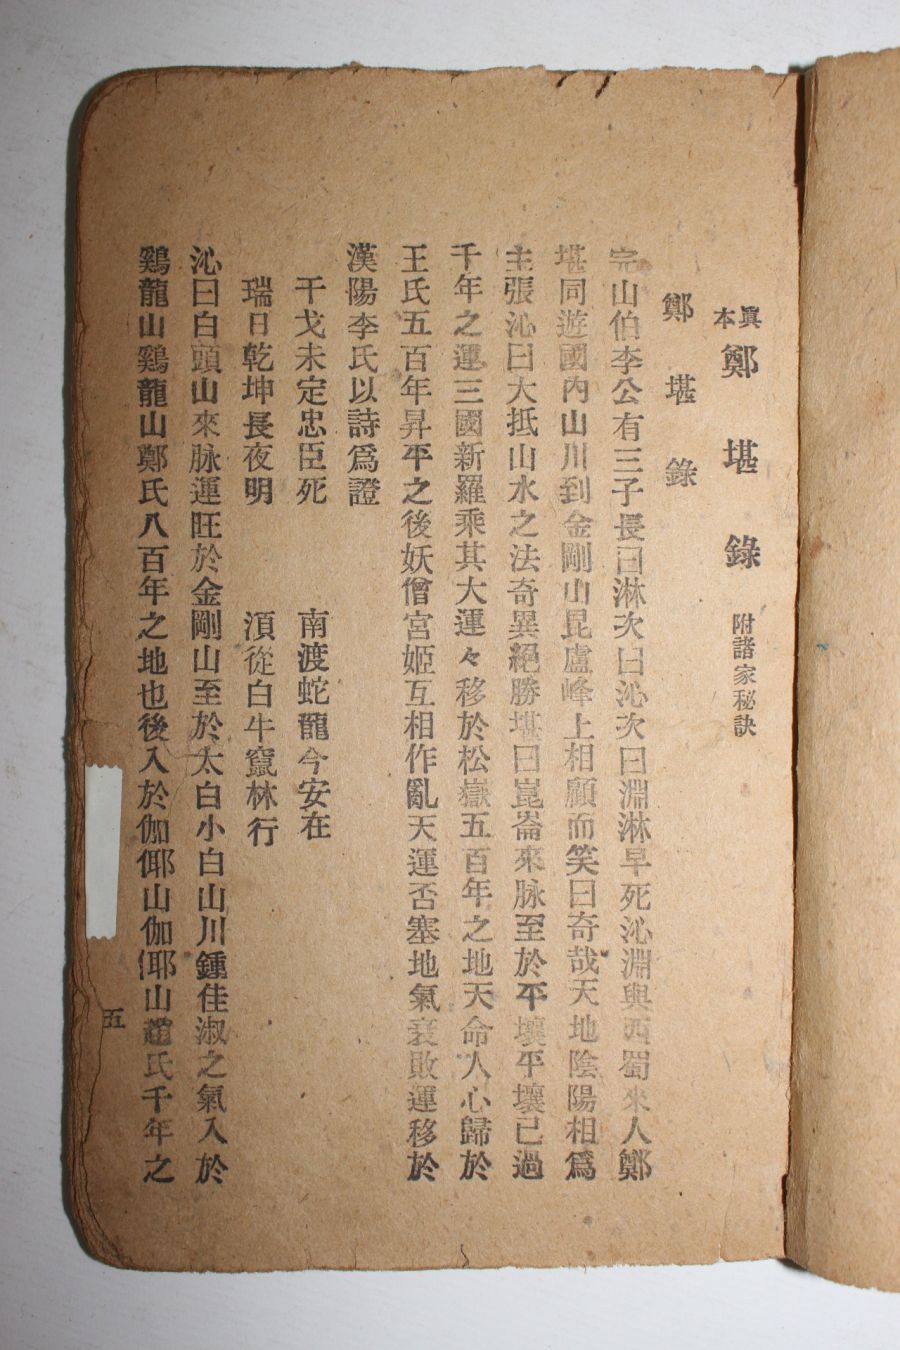 眞本 鄭堪錄 附諸家秘訣
鄭堪錄
完山伯李公有三子長曰淋次曰沁次曰淵淋早死沁淵與西蜀來人鄭
堪同遊國內山川到金剛山毘盧峰上相顧而笑曰奇哉天地陰陽相爲
主張沁曰大抵山水之法奇異絕勝堪曰崑崙來脉至於平壤平壤已過
千年之運三國新羅乘其大運々移於松嶽五百年之地天命人心歸於
王氏五百年昇平之後妖僧宮姬互相作亂天運否塞地氣衰敗運移於
漢陽李氏以詩爲證
干戈未定忠臣死 南渡蛇龍今安在
瑞日乾坤長夜明 湏從白牛竄林行
沁曰白頭山來脉運旺於金剛山至於太白小白山川鍾佳淑之氣入於
鷄龍山鷄龍山鄭氏八百年之地也後入於伽倻山伽倻山趙氏千年之
五